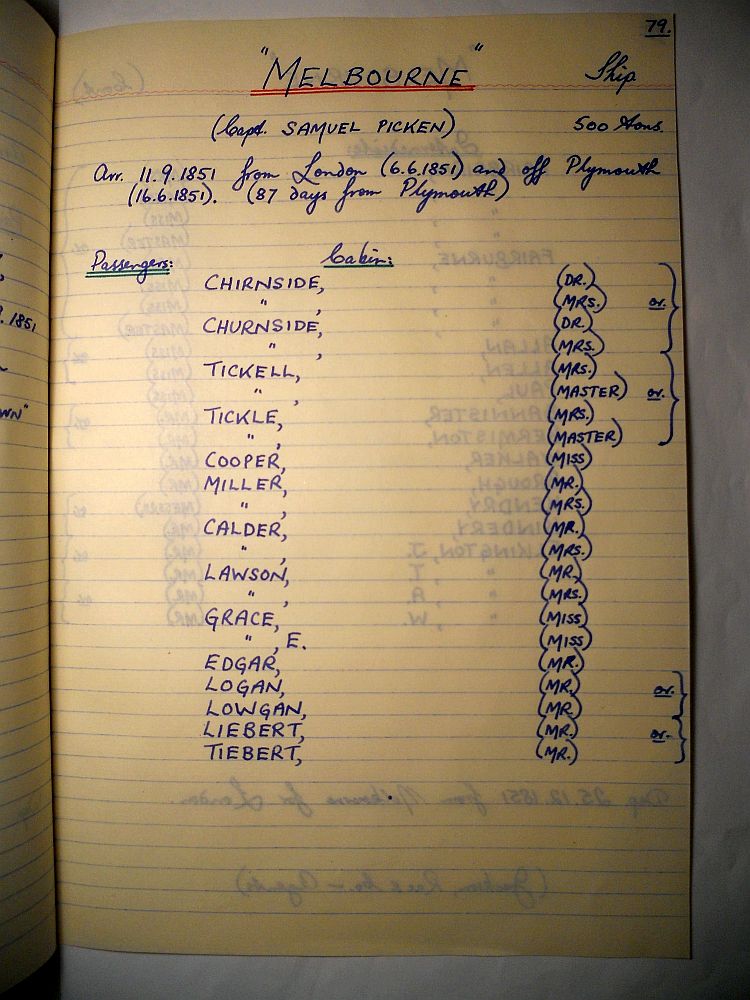 79.
"MELBOURNE" Ship
(Capt. SAMUEL PICKEN) 500 tons.
Arr. 11.9.1851 from London (6.6.1851) and off Plymouth
(16.6.1851). (87 days from Plymouth)
Passengers: Cabin:
CHIRNSIDE, (DR.)
" , (MRS.) or.
CHURNSIDE, (DR.)
" , (MRS.)
TICKELL, (MRS.)
" , (MASTER) or.
TICKLE, (MRS.)
" , (MASTER)
COOPER, (MISS)
MILLER, (MR.)
" , (MRS.)
CALDER, (MR.)
" , (MRS.)
LAWSON, (MR.)
" , (MRS.)
GRACE, (MISS)
" , E. (MISS)
EDGAR, (MR.)
LOGAN, (MR.) or.
LOWGAN, (MR.)
LIEBERT, (MR.) or.
TIEBERT, (MR.)
. 1851
WN"